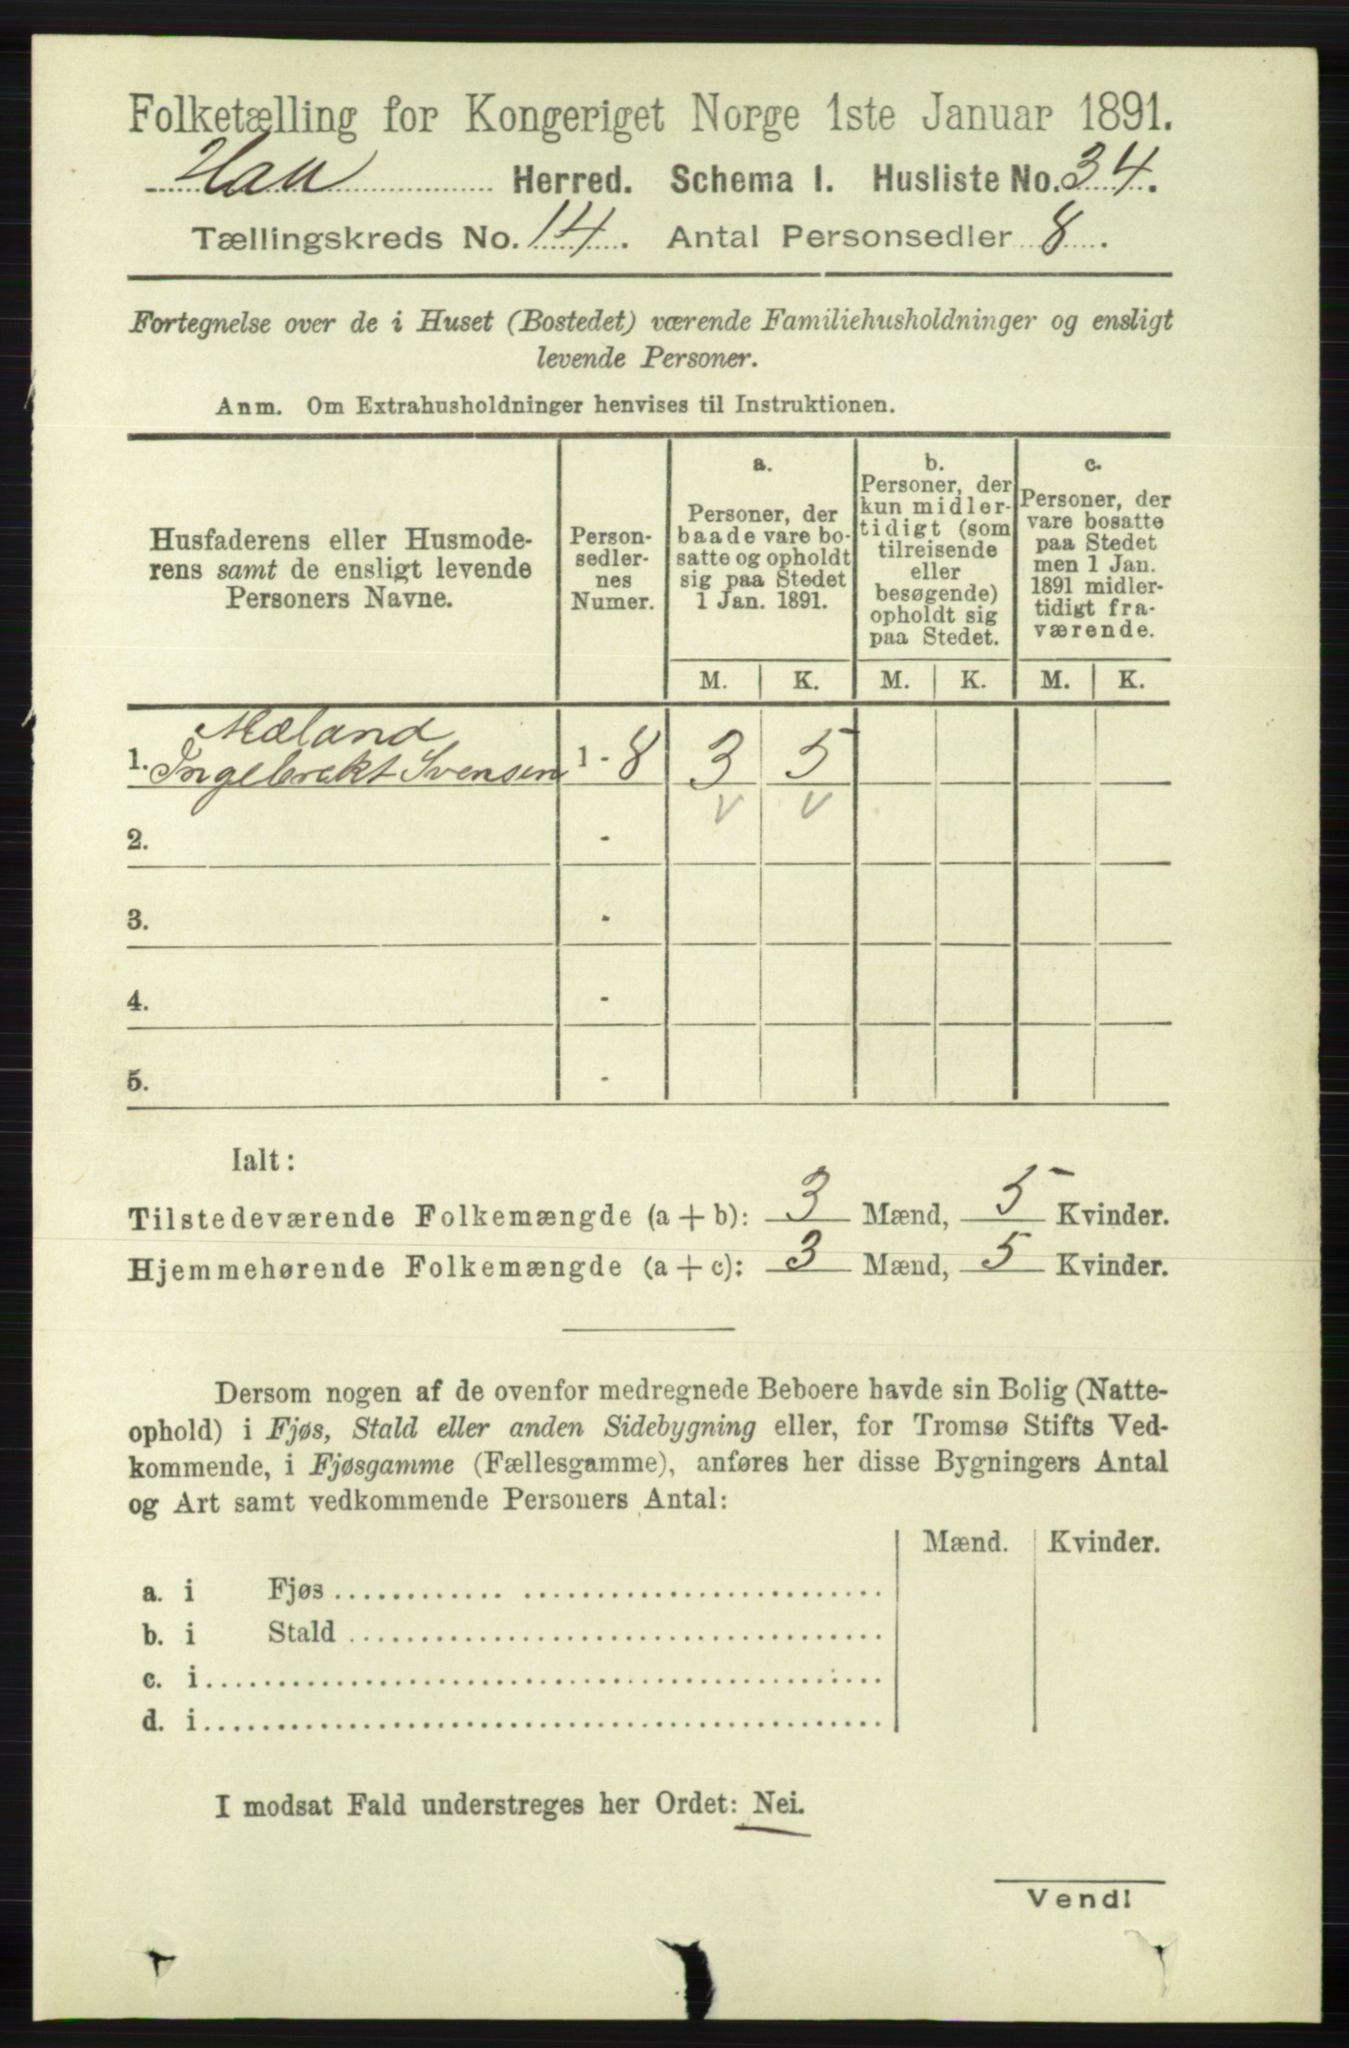 Folketælling for Kongeriget Norge 1ste Januar 1891.
Haa Herred. Schema I. Husliste No. 34.
Tællingskreds No. 14. Antal Personsedler 8.
Fortegnelse over de i Huset (Bostedet) værende Familiehusholdninger og ensligt
levende Personer.
Anm. Om Extrahusholdninger henvises til Instruktionen.
Husfaderens eller Husmode-
rens samt de ensligt levende
Personers Navne.
Person-
sedler-
nes
Numer.
a.
Personer, der
baade vare bo-
satte og opholdt
sig paa Stedet
1 Jan. 1891.
b.
Personer, der
kun midler-
tidigt (som
tilreisende
eller
besøgende)
opholdt sig
paa Stedet.
c.
Personer, der
vare bosatte
paa Stedet
men 1 Jan.
1891 midler-
tidigt fra-
værende.
M. K. M. K. M. K.
Mæland
1. Ingebrekt Svensen 1 - 8 3 5
2. -
3. -
4. -
5. -
Ialt:
Tilstedeværende Folkemængde (a + b): 3 Mænd, 5 Kvinder.
Hjemmehørende Folkemængde (a + c): 3 Mænd, 5 Kvinder.
Dersom nogen af de ovenfor medregnede Beboere havde sin Bolig (Natte-
ophold) i Fjøs, Stald eller anden Sidebygning eller, for Tromsø Stifts Ved-
kommende, i Fjøsgamme (Fællesgamme), anføres her disse Bygningers Antal
og Art samt vedkommende Personers Antal:
Mænd. Kvinder.
a. i Fjøs
b. i Stald
c. i
d. i
I modsat Fald understreges her Ordet: Nei.
Vend!